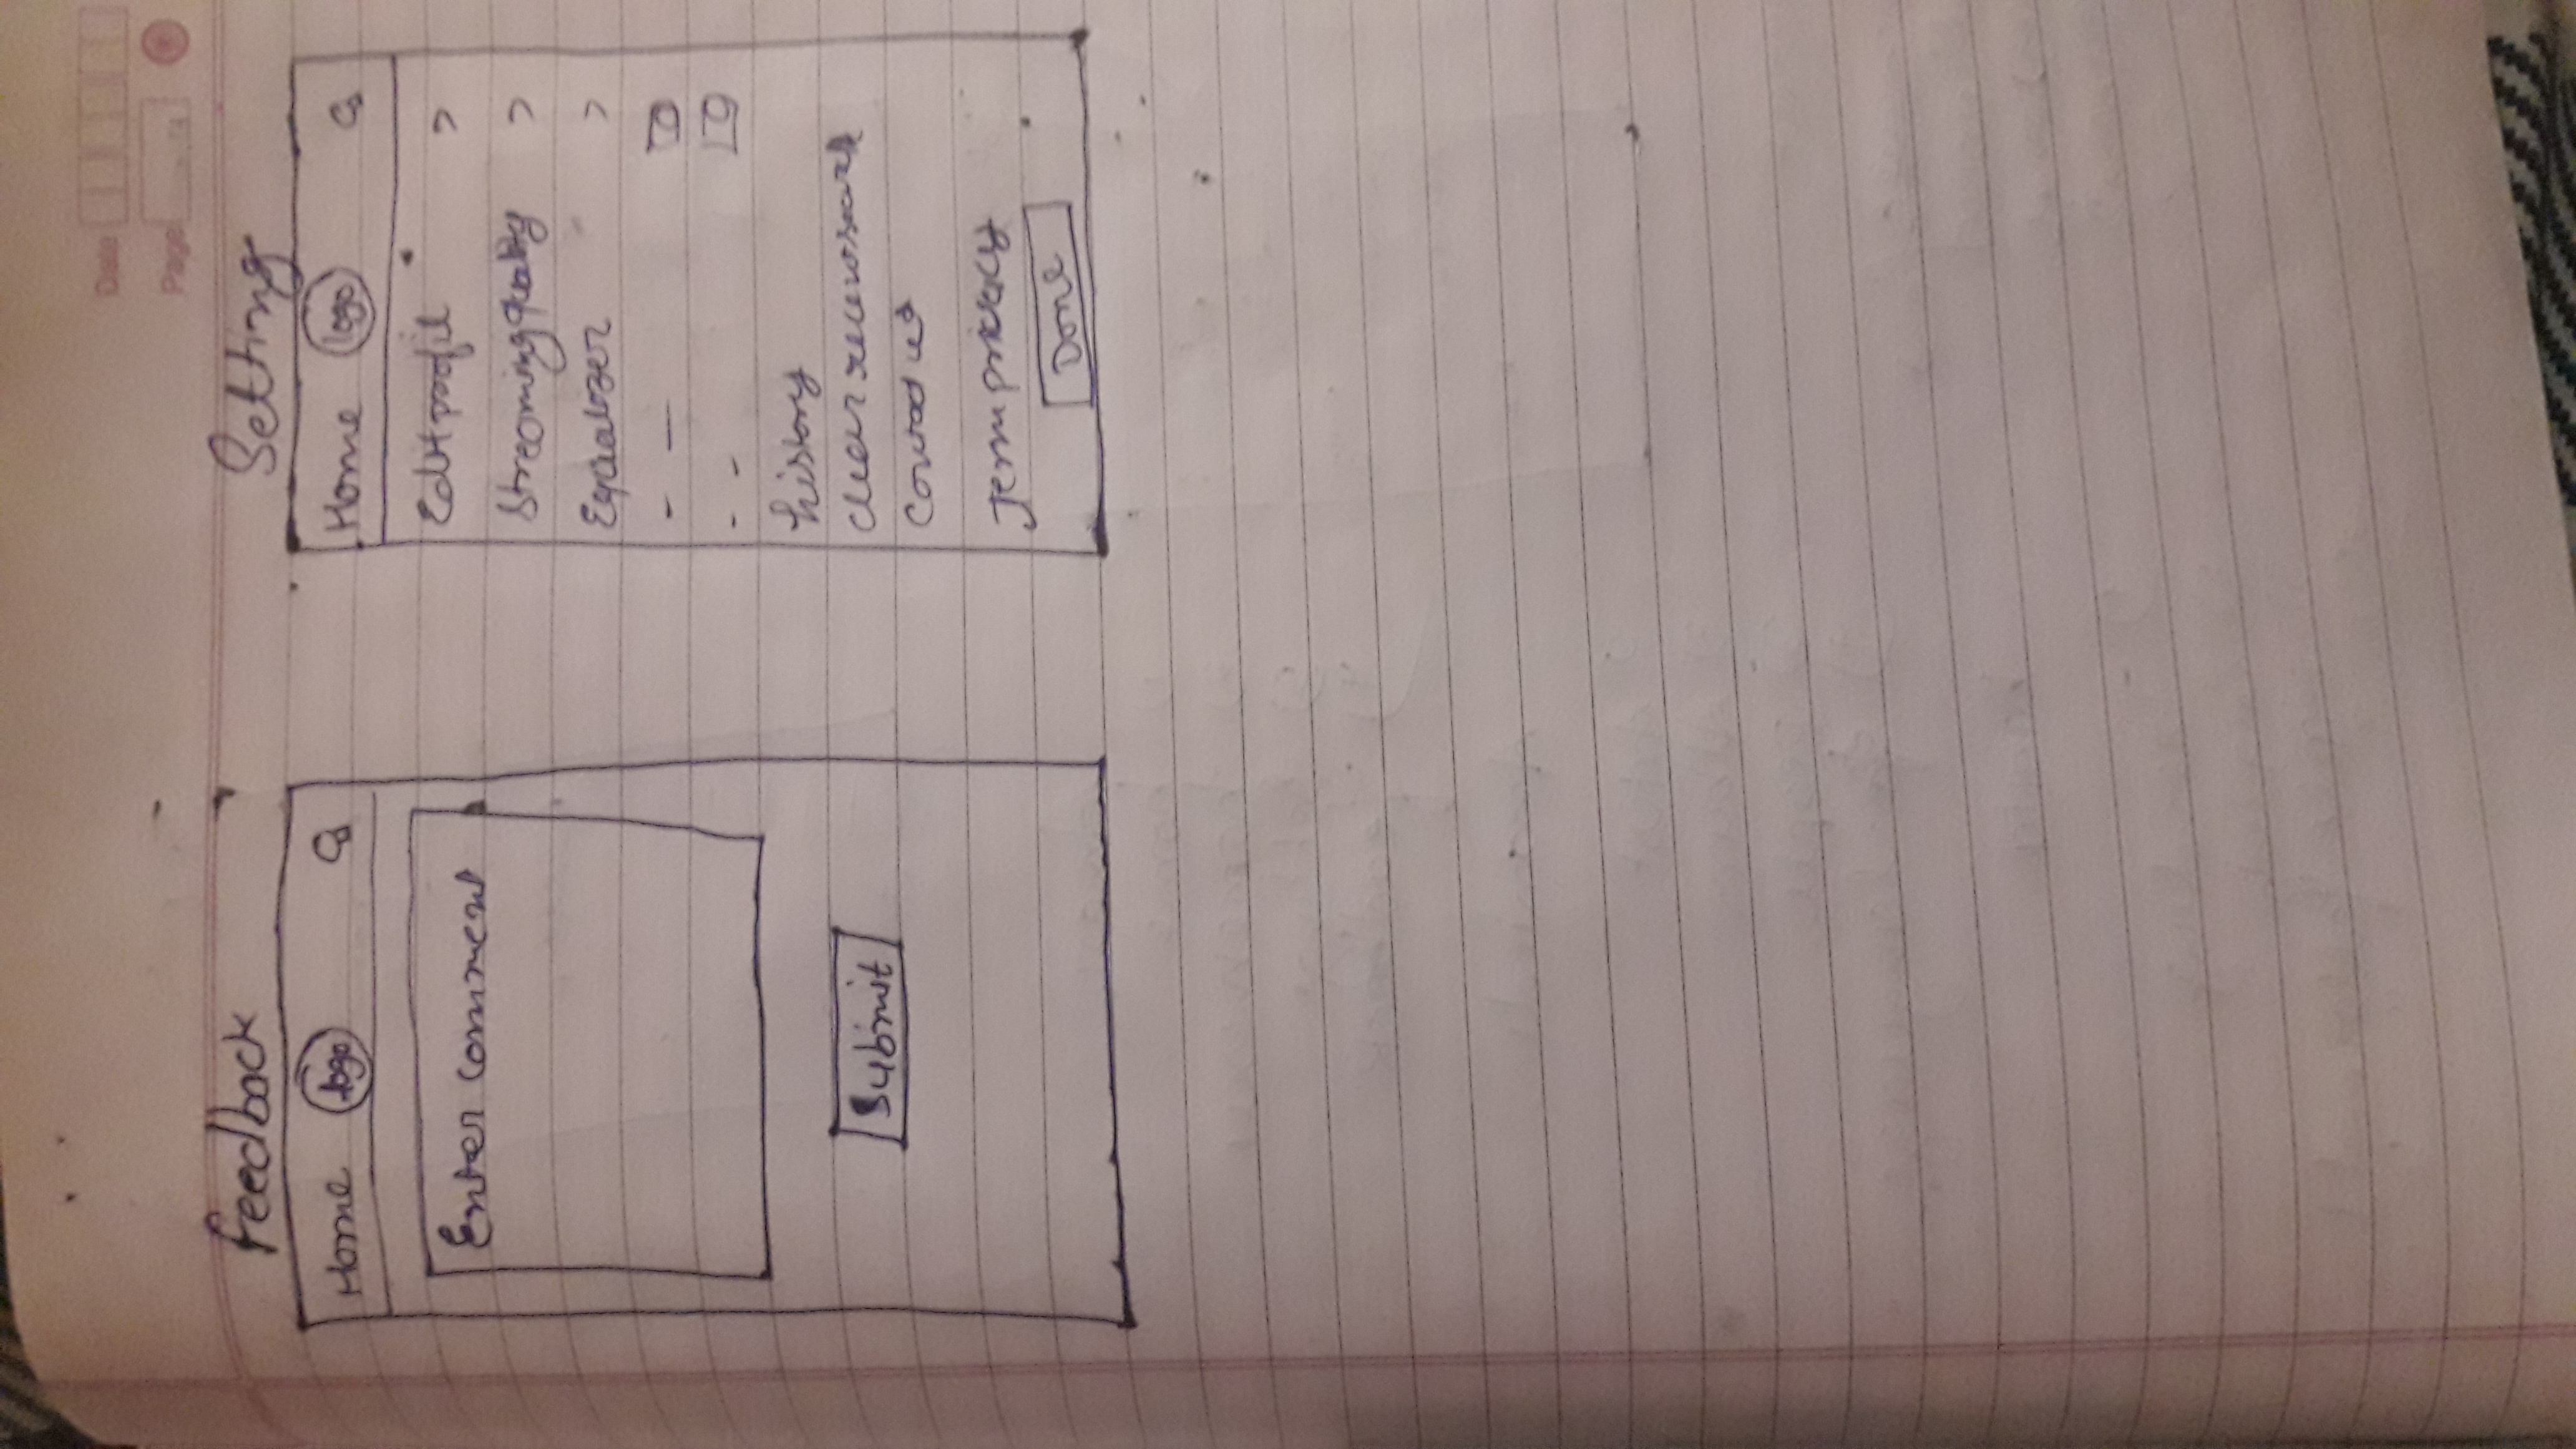 Date
Page
Feedback
Home logo
Enter comment
Submit
Setting
Home logo
Edit profil >
Streaming quality >
Equalozer >
- -
- -
history
clear recent search
Contact us
Term privacy
Done